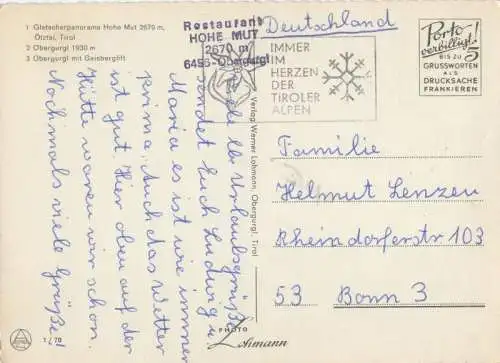 1 Gletscherpanorama Hohe Mut 2670 m,
Ötztal, Tirol
2 Obergurgl 1930 m
3 Obergurgl mit Geisberglift
Restaurant
HOHE MUT
2670 m
6456-Obergurgl
Deutschland
IMMER
IM
HERZEN
DER
TIROLER
ALPEN
Porto
verbilligt!
BIS ZU 5
GRUSSWORTEN
ALS
DRUCKSACHE
FRANKIEREN
Viele lb. Urlaubsgrüße
sendet Euch Ludwig u.
Maria es ist wie immer
prima, auch das Wetter
ist gut. Hier oben auf der
Hütte waren wir schon.
Nochmals viele Grüße!
Verlag Werner Lohmann, Obergurgl, Tirol
Familie
Helmut Lenzen
Rheindorferstr. 103
53 Bonn 3
PHOTO
Lohmann
1/70